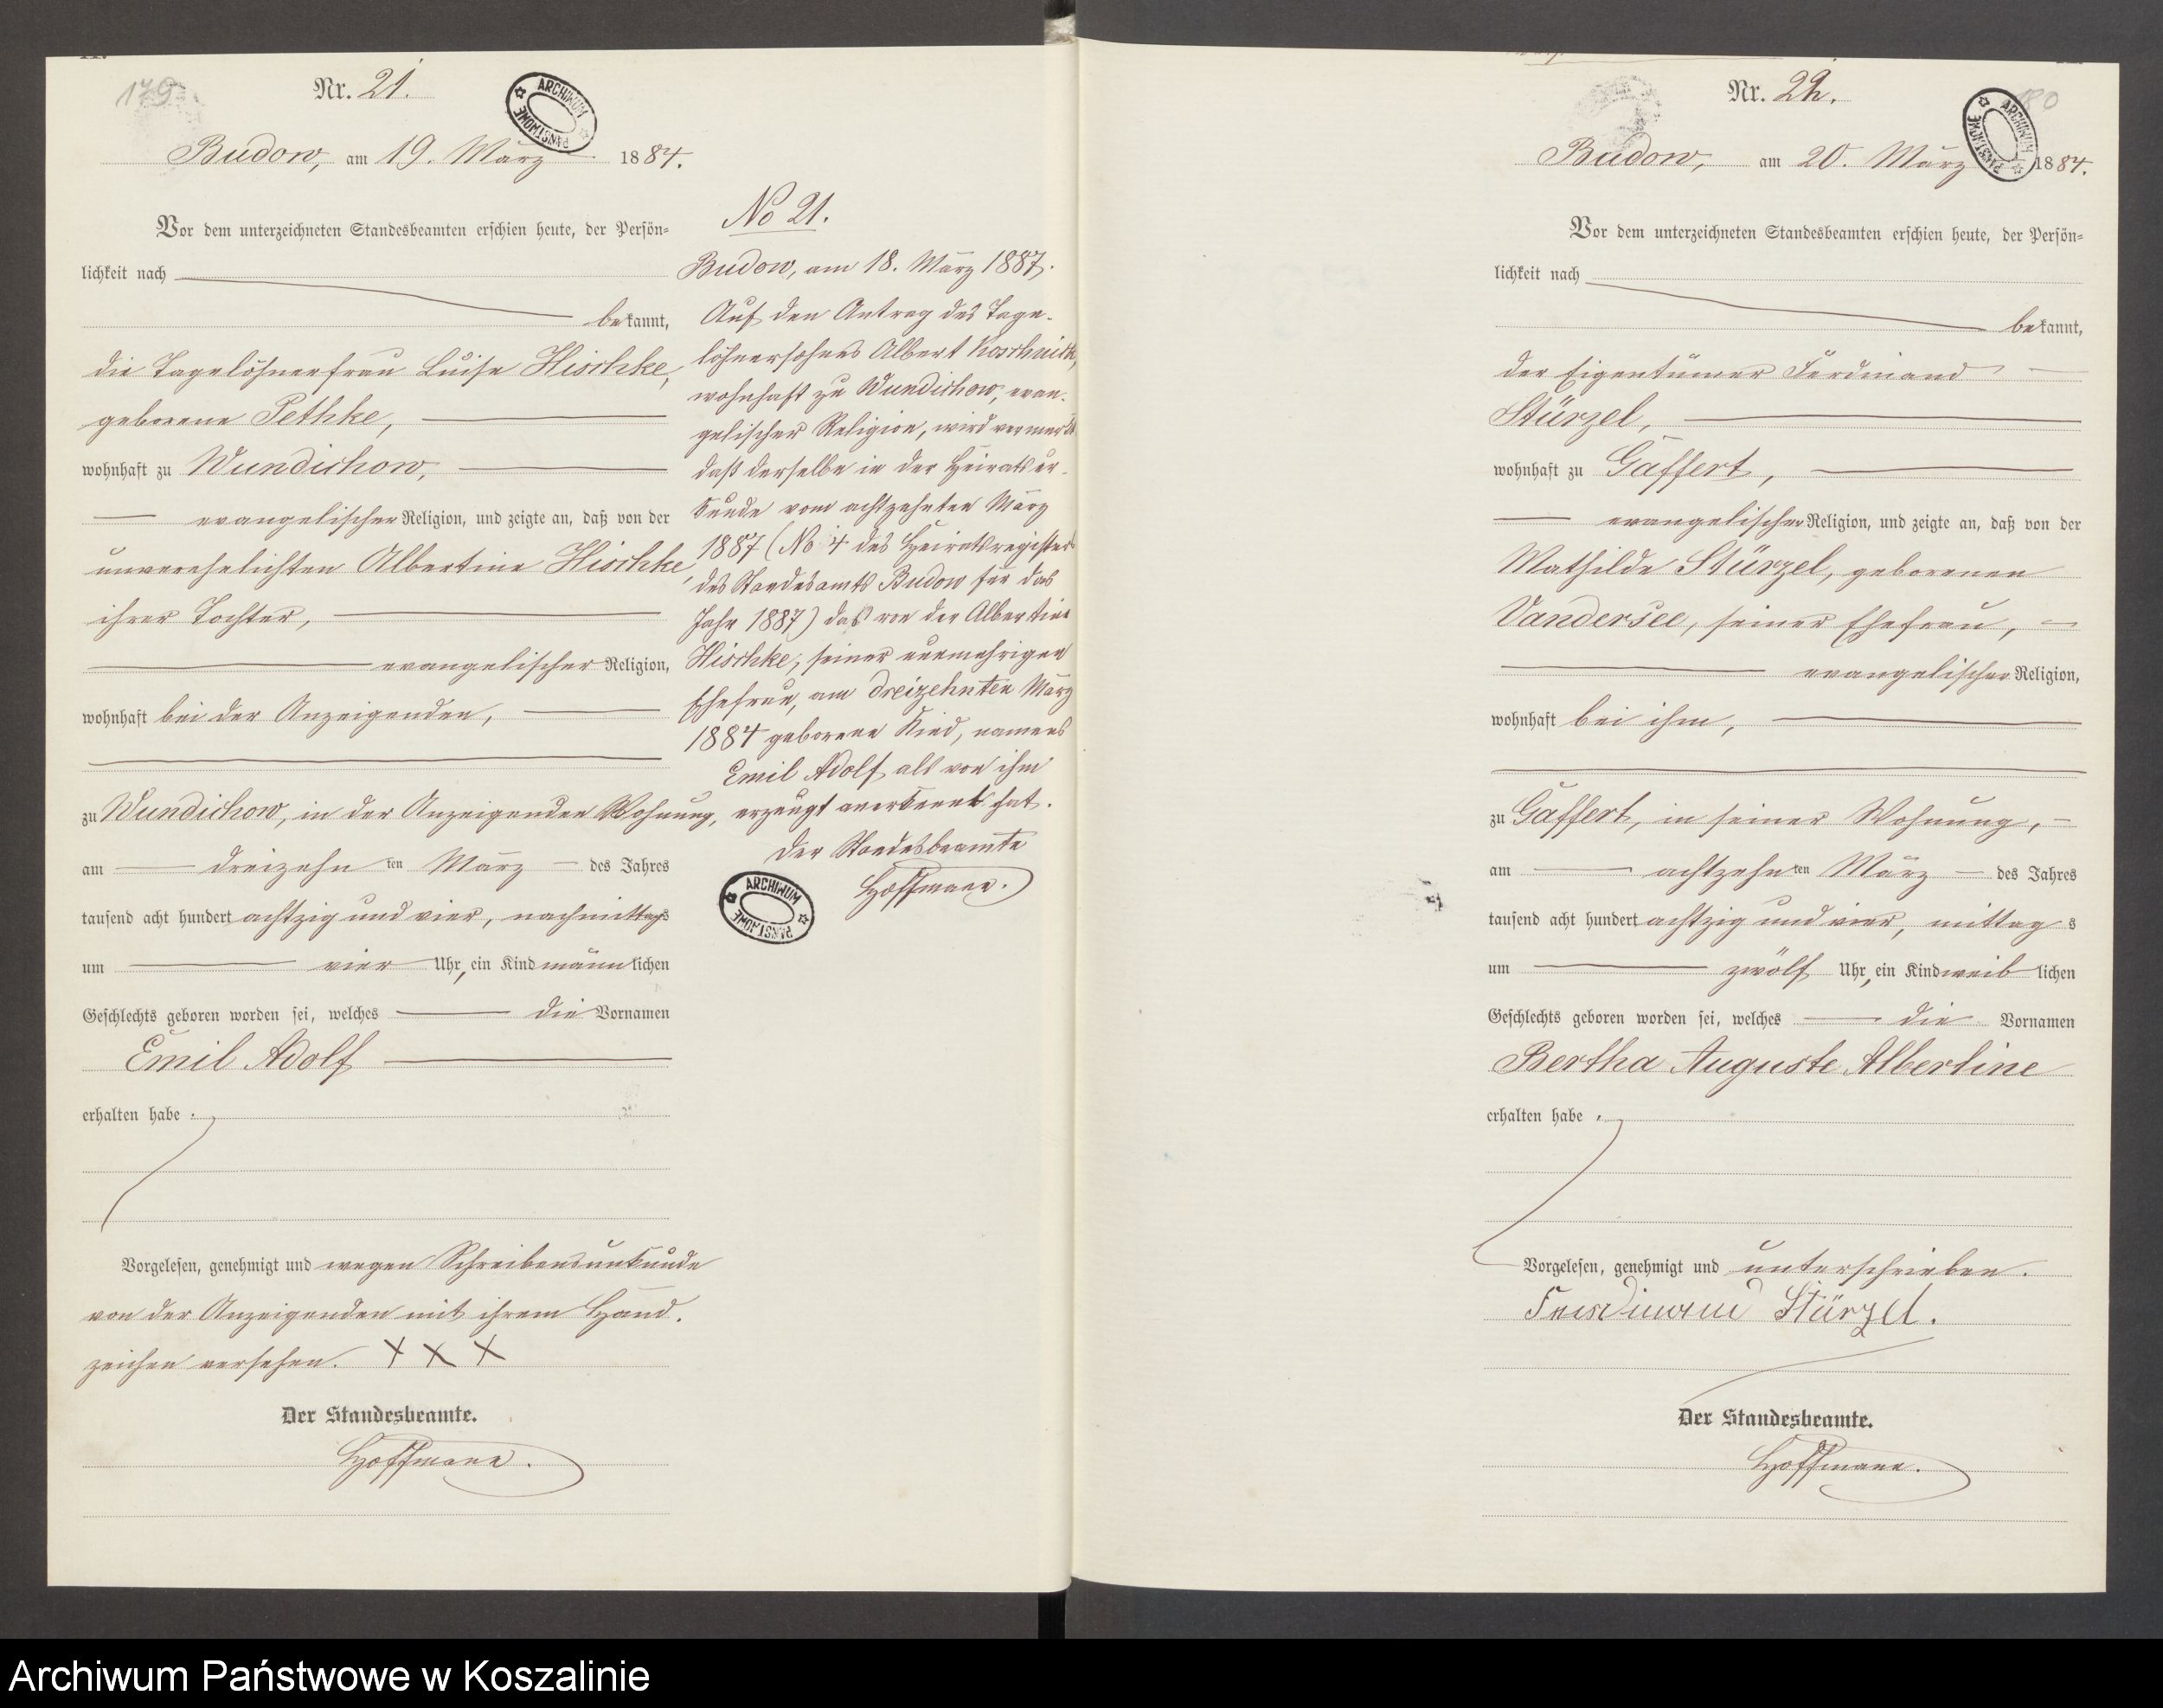 179
Nr. 21.
ARCHIWUM PAŃSTWOWE
Budow, am 19. März 1884.
Vor dem unterzeichneten Standesbeamten erschien heute, der Persön=
lichkeit nach
bekannt,
die Tagelöhnerfrau Luise Hischke,
geborene Pethke,
wohnhaft zu Wundichow,
evangelischer Religion, und zeigte an, daß von der
unverehelichten Albertine Hischke,
ihrer Tochter,
evangelischer Religion,
wohnhaft bei der Anzeigenden,
zu Wundichow, in der Anzeigenden Wohnung,
am dreizehn ten März des Jahres
tausend acht hundert achtzig und vier, nachmittags
um vier Uhr, ein Kind männlichen
Geschlechts geboren worden sei, welches die Vornamen
Emil Adolf
erhalten habe.
Vorgelesen, genehmigt und wegen Schreibensunkunde
von der Anzeigenden mit ihrem Hand.
zeichen versehen. X X X
Der Standesbeamte.
Hoffmann.
No 21.
Budow, am 18. März 1887.
Auf den Antrag des Tage-
löhnersohnes Albert Koschnick,
wohnhaft zu Wundichow, evan-
gelischer Religion, wird vermerkt
daß derselbe in der Heiratsur-
kunde vom achtzehnten März
1887 (No 4 des Heiratsregisters
des Standesamts Budow für das
Jahr 1887) das von der Albertine
Hischke, seiner nunmehrigen
Ehefrau, am dreizehnten März
1884 geborene Kind, namens
Emil Adolf als von ihm
erzeugt anerkannt hat.
Der Standesbeamte
Hoffmann.
ARCHIWUM PAŃSTWOWE
180
Nr. 22.
ARCHIWUM PAŃSTWOWE
Budow, am 20. März 1884.
Vor dem unterzeichneten Standesbeamten erschien heute, der Persön=
lichkeit nach
bekannt,
der Eigentümer Ferdinand
Stürzel,
wohnhaft zu Gaffert,
evangelischer Religion, und zeigte an, daß von der
Mathilde Stürzel, geborenen
Vandersee, seiner Ehefrau,
evangelischer Religion,
wohnhaft bei ihm,
zu Gaffert, in seiner Wohnung,
am achtzehn ten März des Jahres
tausend acht hundert achtzig und vier, mittag s
um zwölf Uhr, ein Kind weib lichen
Geschlechts geboren worden sei, welches die Vornamen
Bertha Auguste Albertine
erhalten habe.
Vorgelesen, genehmigt und unterschrieben.
Ferdinand Stürzel.
Der Standesbeamte.
Hoffmann.
Archiwum Państwowe w Koszalinie